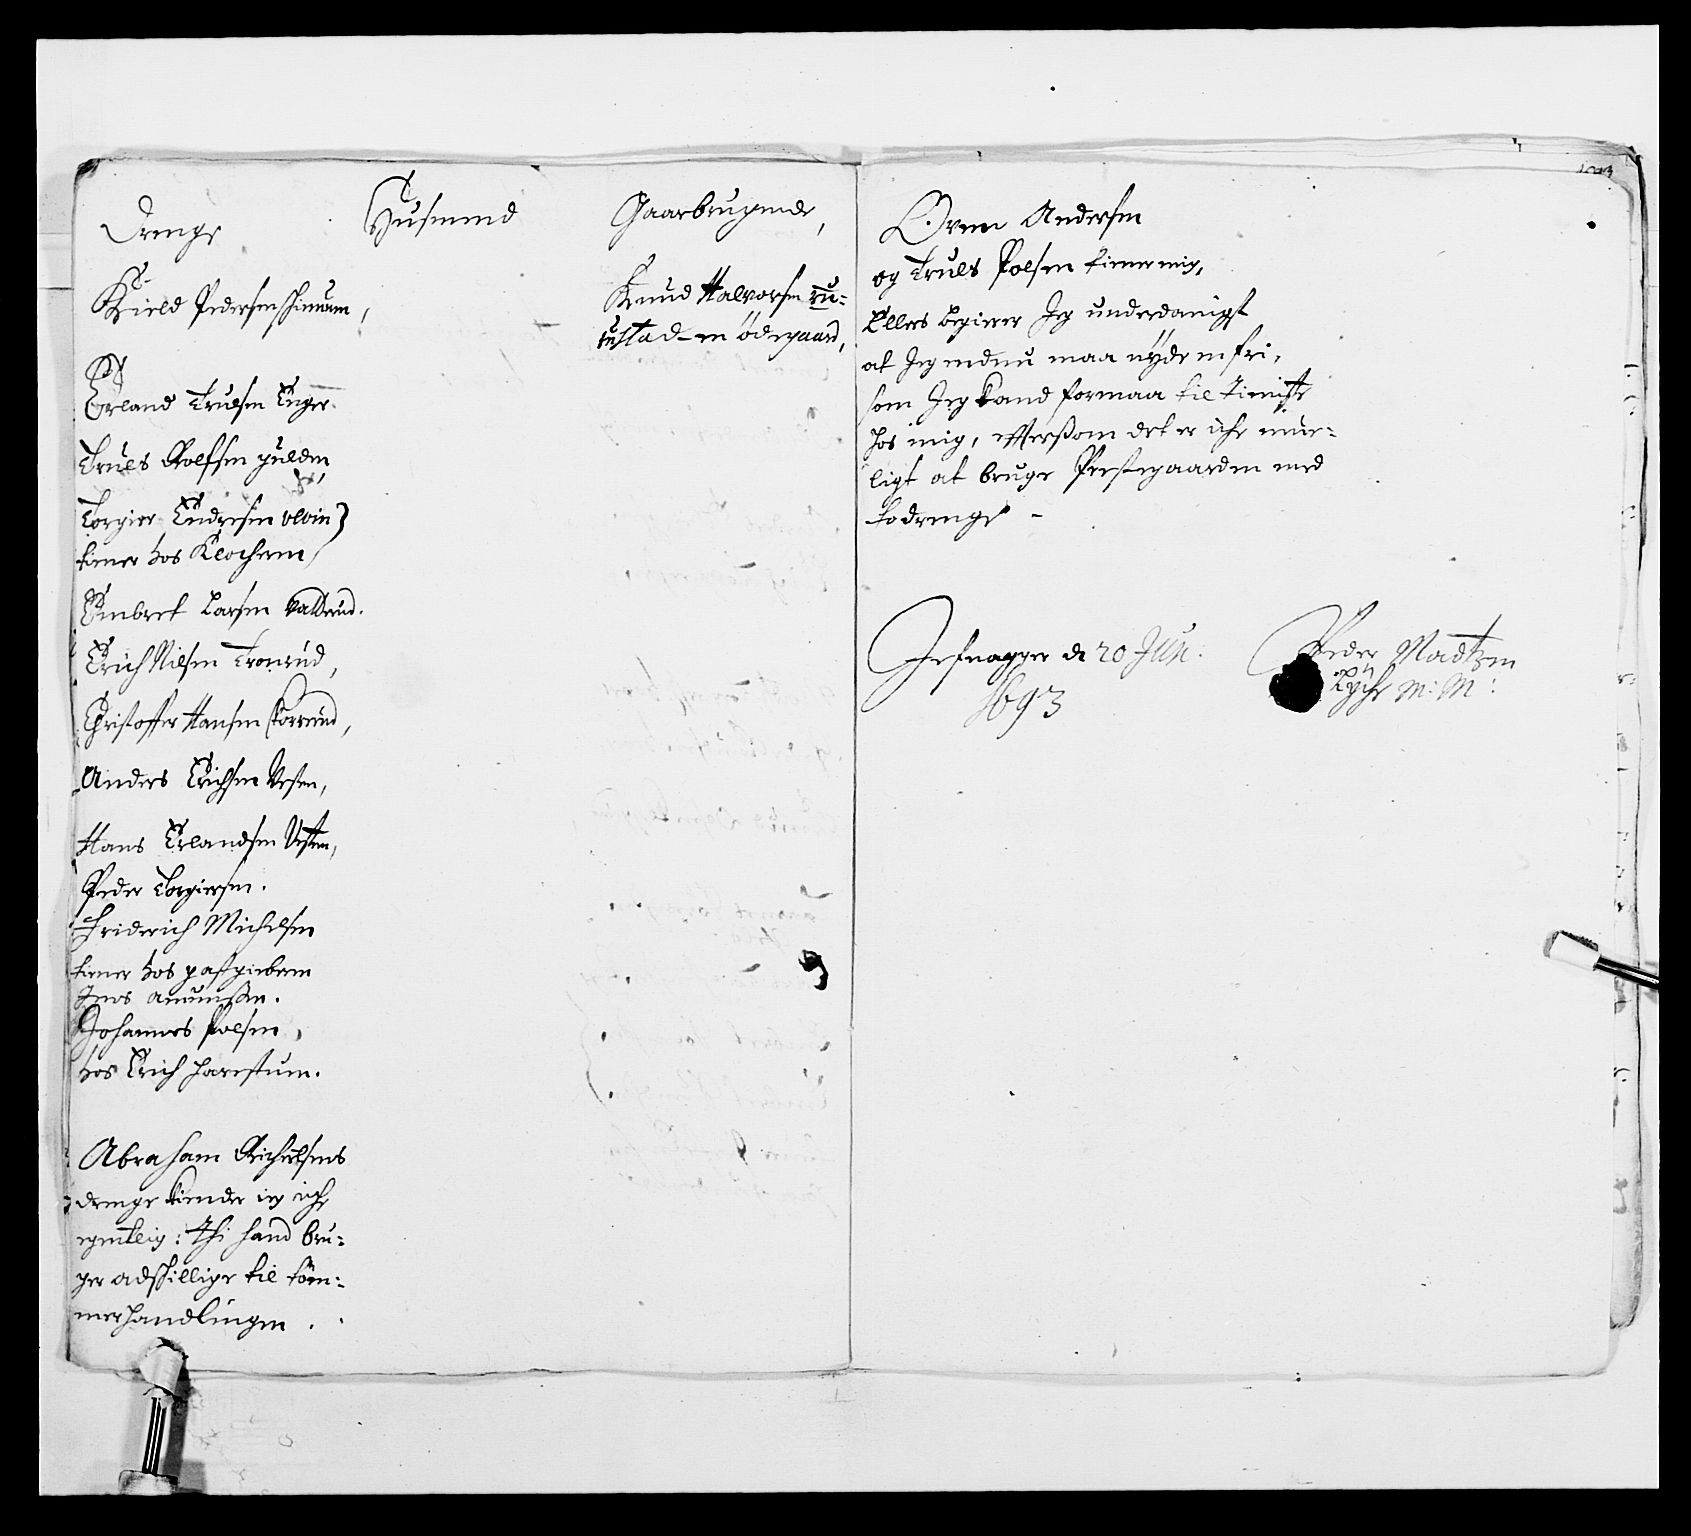 Drenge
Husmend
Gaarbrugende,
Kield Pedersen
Knud Halvorsen ru-
ustad en ödegaard,
Erland Trulsen Enger
Truls Rolfsen gulden
Torgier Endresen olvin
tiener hos Klocheren
Embret Larsen Valdrud.
Erich Nilsen Tronrud,
Christoffer Hansen
Anders Erichsen Vesten,
Hans Erlandsen Vesten,
Peder Torgiersen.
Friderich Michelsen
tiener hos gastgieberen
Jens amunsen.
Johannes Polsen,
hos Erich harestuen.
Abraham Michelsens
drenge kiender ieg iche
egentlig: thi hand bru-
ger adschillige til töm-
merhandlingen.
Oven Andersen
og Truls Polsen tiener mig,
Ellers begierer Jeg underdanigst
at Jeg endnu maa nyde en fri,
som Jeg kand formaa til tieniste
hos mig, efftersom det er iche mue-
ligt at bruge Prestegaarden med
to drenge -
Jefnager d 20 Jun:
1693
Peder Madtzen
Lyche M: M: